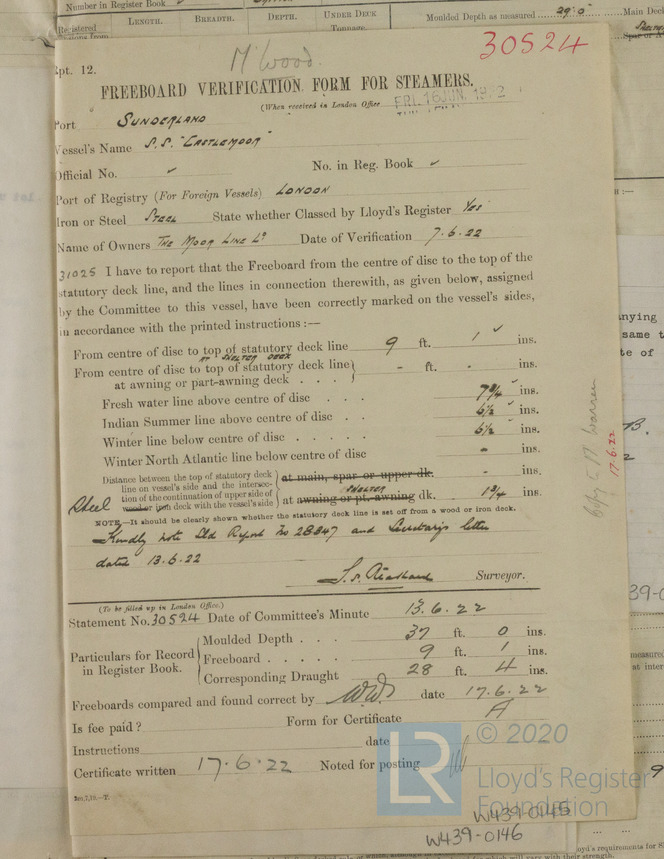 Number in Register Book
LENGTH. BREADTH. DEPTH. UNDER DECK Tonnage.
Moulded Depth as measured 29·0 Main Deck
Registered
30524
M'Wood.
Rpt. 12.
FREEBOARD VERIFICATION FORM FOR STEAMERS.
(When received in London Office FRI. 16 JUN. 1922)
Port SUNDERLAND
Vessel's Name S.S. "CASTLEMOOR"
Official No. ✓ No. in Reg. Book ✓
Port of Registry (For Foreign Vessels) LONDON
Iron or Steel STEEL State whether Classed by Lloyd's Register YES
Name of Owners THE MOOR LINE Ld Date of Verification 7.6.22
31025 I have to report that the Freeboard from the centre of disc to the top of the
statutory deck line, and the lines in connection therewith, as given below, assigned
by the Committee to this vessel, have been correctly marked on the vessel's sides,
in accordance with the printed instructions :—
From centre of disc to top of statutory deck line 9 ft. 1 ✓ ins.
AT SHELTER DECK
From centre of disc to top of statutory deck line
at awning or part-awning deck . . . - ft. - ins.
Fresh water line above centre of disc . . . 7 3/4 ✓ ins.
Indian Summer line above centre of disc . . 6 1/2 ✓ ins.
Winter line below centre of disc . . . . . 6 1/2 ✓ ins.
Winter North Atlantic line below centre of disc - ins.
Distance between the top of statutory deck
line on vessel's side and the intersection
of the continuation of upper side of
Steel wood or iron deck with the vessel's side
at main, spar or upper dk. - ins.
SHELTER
at awning or pt.-awning dk. 1 3/4 ins.
NOTE.—It should be clearly shown whether the statutory deck line is set off from a wood or iron deck.
Kindly note Sld Report No 28847 and Secretary's letter
dated 13.6.22
Surveyor.
(To be filled up in London Office.)
Statement No. 30524 Date of Committee's Minute 13.6.22
Particulars for Record in Register Book.
Moulded Depth . . . 37 ft. 0 ins.
Freeboard . . . . . 9 ft. 1 ins.
Corresponding Draught 28 ft. 4 ins.
Freeboards compared and found correct by date 17.6.22
Is fee paid ? Form for Certificate A
Instructions date
Certificate written 17.6.22 Noted for posting
17.6.22
LR © 2020
Lloyd's Register
Foundation
W439-0145
W439-0146